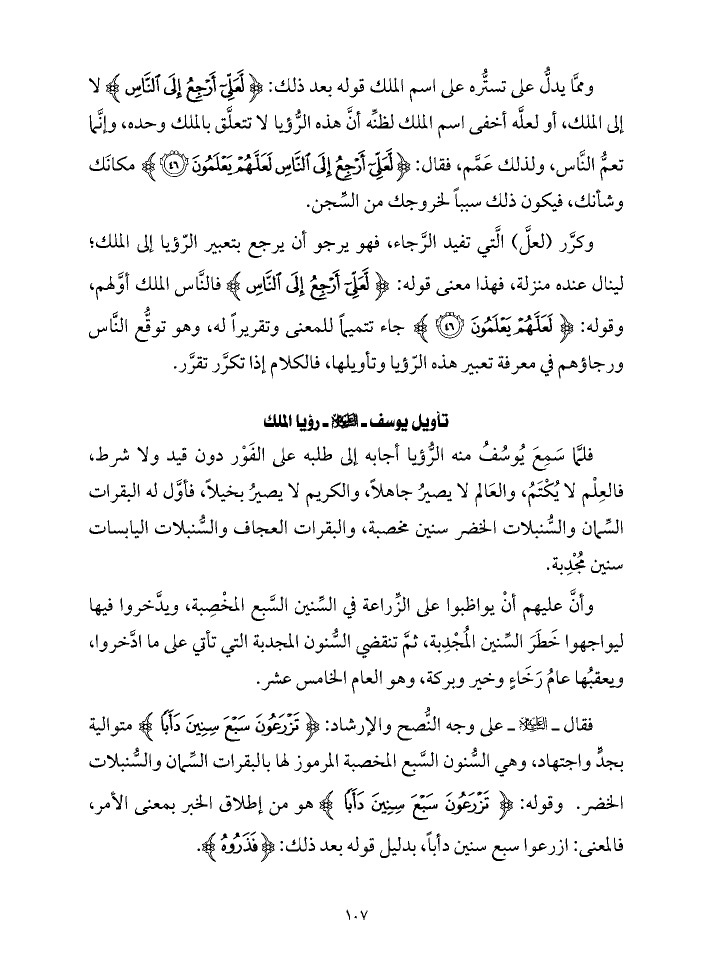 وممَّا يدلُّ على تستُّره على اسم الملك قوله بعد ذلك: ﴿ لَّعَلِّيٓ أَرْجِعُ إِلَى ٱلنَّاسِ ﴾ لا
إلى الملك، أو لعلَّه أخفى اسم الملك لظنِّه أنَّ هذه الرُّؤيا لا تتعلَّق بالملك وحده، وإنَّما
تعمُّ النَّاس، ولذلك عَمَّم، فقال: ﴿ لَّعَلِّيٓ أَرْجِعُ إِلَى ٱلنَّاسِ لَعَلَّهُمْ يَعْلَمُونَ ٤٦ ﴾ مكانَك
وشأنك، فيكون ذلك سبباً لخروجك من السِّجن.
وكرَّر (لعلَّ) الَّتي تفيد الرَّجاء، فهو يرجو أن يرجع بتعبير الرّؤيا إلى الملك؛
لينال عنده منزلة، فهذا معنى قوله: ﴿ لَّعَلِّيٓ أَرْجِعُ إِلَى ٱلنَّاسِ ﴾ فالنَّاس الملك أوَّلهم،
وقوله: ﴿ لَعَلَّهُمْ يَعْلَمُونَ ٤٦ ﴾ جاء تتميماً للمعنى وتقريراً له، وهو توقُّع النَّاس
ورجاؤهم في معرفة تعبير هذه الرّؤيا وتأويلها، فالكلام إذا تكرَّر تقرَّر.
تأويل يوسف ـ عليه السلام ـ رؤيا الملك
فلمَّا سَمِعَ يُوسُفُ منه الرُّؤيا أجابه إلى طلبه على الفَوْر دون قيد ولا شرط،
فالعِلْم لا يُكْتَمُ، والعَالم لا يصيرُ جاهلاً، والكريم لا يصيرُ بخيلاً، فأوَّل له البقرات
السِّمان والسُّنبلات الخضر سنين مخصبة، والبقرات العجاف والسُّنبلات اليابسات
سنين مُجْدِبة.
وأنَّ عليهم أنْ يواظبوا على الزِّراعة في السِّنين السَّبع المخْصِبة، ويدَّخروا فيها
ليواجهوا خَطَرَ السِّنين المُجْدِبة، ثمَّ تنقضي السُّنون المجدبة التي تأتي على ما ادَّخروا،
ويعقبُها عامُ رَخَاءٍ وخير وبركة، وهو العام الخامس عشر.
فقال ـ عليه السلام ـ على وجه النُّصح والإرشاد: ﴿ تَزْرَعُونَ سَبْعَ سِنِينَ دَأَبًا ﴾ متوالية
بجدٍّ واجتهاد، وهي السُّنون السَّبع المخصبة المرموز لها بالبقرات السِّمان والسُّنبلات
الخضر. وقوله: ﴿ تَزْرَعُونَ سَبْعَ سِنِينَ دَأَبًا ﴾ هو من إطلاق الخبر بمعنى الأمر،
فالمعنى: ازرعوا سبع سنين دأباً، بدليل قوله بعد ذلك: ﴿ فَذَرُوهُ ﴾.
١٠٧